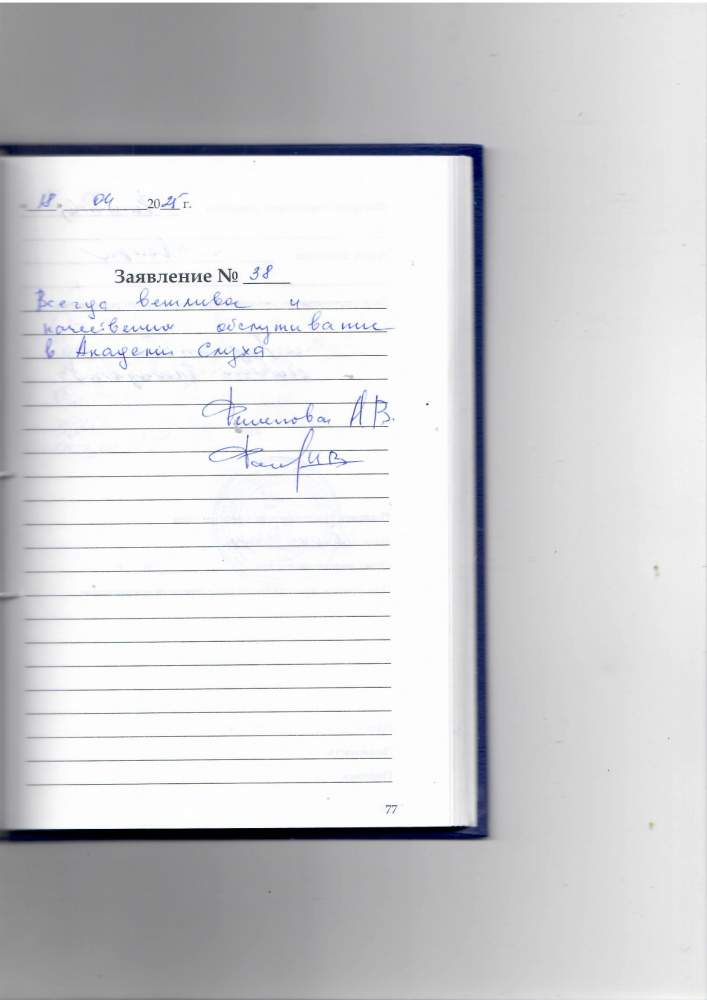 "18" 04 2025 г.
Заявление № 38
Всегда вежливое и
качественное обслуживание
в Академии Слуха
А В.
77